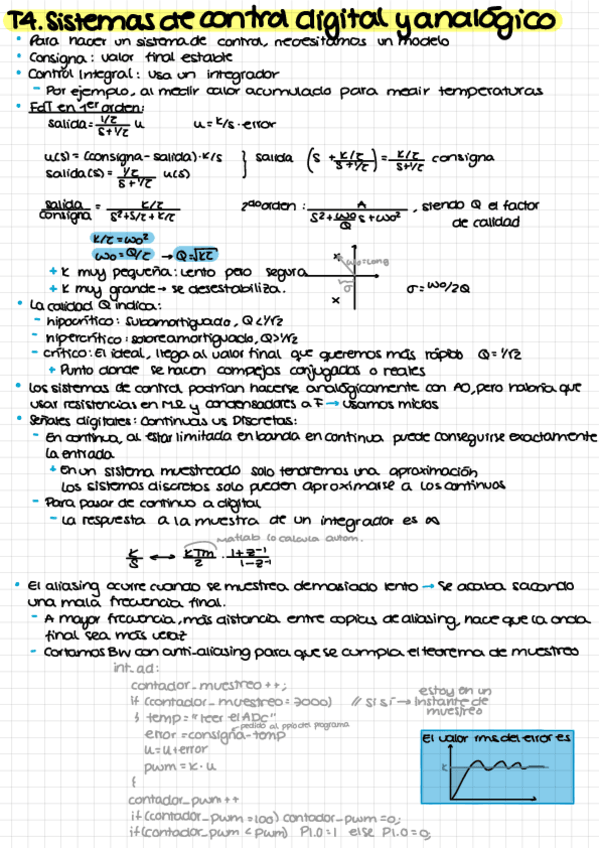 T4. Sistemas de control digital y analógico
• Para hacer un sistema de control, necesitamos un modelo
• Consigna: valor final estable
• Control Integral: usa un integrador
- Por ejemplo, al medir calor acumulado para medir temperaturas
• EdT en 1er orden:
salida = (1/τ)/(s+1/τ) u    u = K/s · error
u(s) = (consigna - salida) · K/s
salida(s) = (1/τ)/(s+1/τ) u(s)
} salida (s + (K/τ)/(s+1/τ)) = (K/τ)/(s+1/τ) consigna
salida/consigna = (K/τ)/(s²+s/τ+K/τ)    2do orden: A/(s²+(ω0/Q)s+ω0²), siendo Q el factor
de calidad
K/τ = ω0²
ω0 = Q/τ → Q=√Kτ
+ K muy pequeña: lento pero segura
+ K muy grande → se desestabiliza.
ω0=long
σ
σ = ω0/2Q
• La calidad Q indica:
- hipocrítico: subamortiguado, Q<1/√2
- hipercrítico: sobreamortiguado, Q>1/√2
- crítico: El ideal, llega al valor final que queremos más rápido Q=1/√2
+ Punto donde se hacen compejos conjugados o reales
• Los sistemas de control podrían hacerse analógicamente con AO, pero habría que
usar resistencias en MΩ y condensadores a F → usamos micros
• Señales digitales: Continuas vs Discretas:
- En continua, al estar limitada en banda en continua puede conseguirse exactamente
la entrada
+ en un sistema muestreado solo tendremos una aproximación
Los sistemas discretos solo pueden aproximarse a los continuos
- Para pasar de continuo a digital
- La respuesta a la muestra de un integrador es ∞
matlab lo calcula autom.
K/s ↔ KTm/2 · (1+z⁻¹)/(1-z⁻¹)
• El aliasing ocurre cuando se muestrea demasiado lento → Se acaba sacando
una mala frecuencia final.
- A mayor frecuencia, más distancia entre copias de aliasing, hace que la onda
final sea más veraz
- Cortamos BW con anti-aliasing para que se cumpla el teorema de muestreo
int_ad:
contador_muestreo ++;
if (contador_muestreo = 2000) // si sí → instante de
estoy en un
muestreo
{ temp = "leer el ADC"
pedido al ppio del programa
error = consigna - temp
u = u + error
pwm = K · u
{
contador_pwm ++
if (contador_pwm = 100) contador_pwm = 0;
if (contador_pwm < pwm) P1.0 = 1 else P1.0 = 0;
El valor rms del error es
K